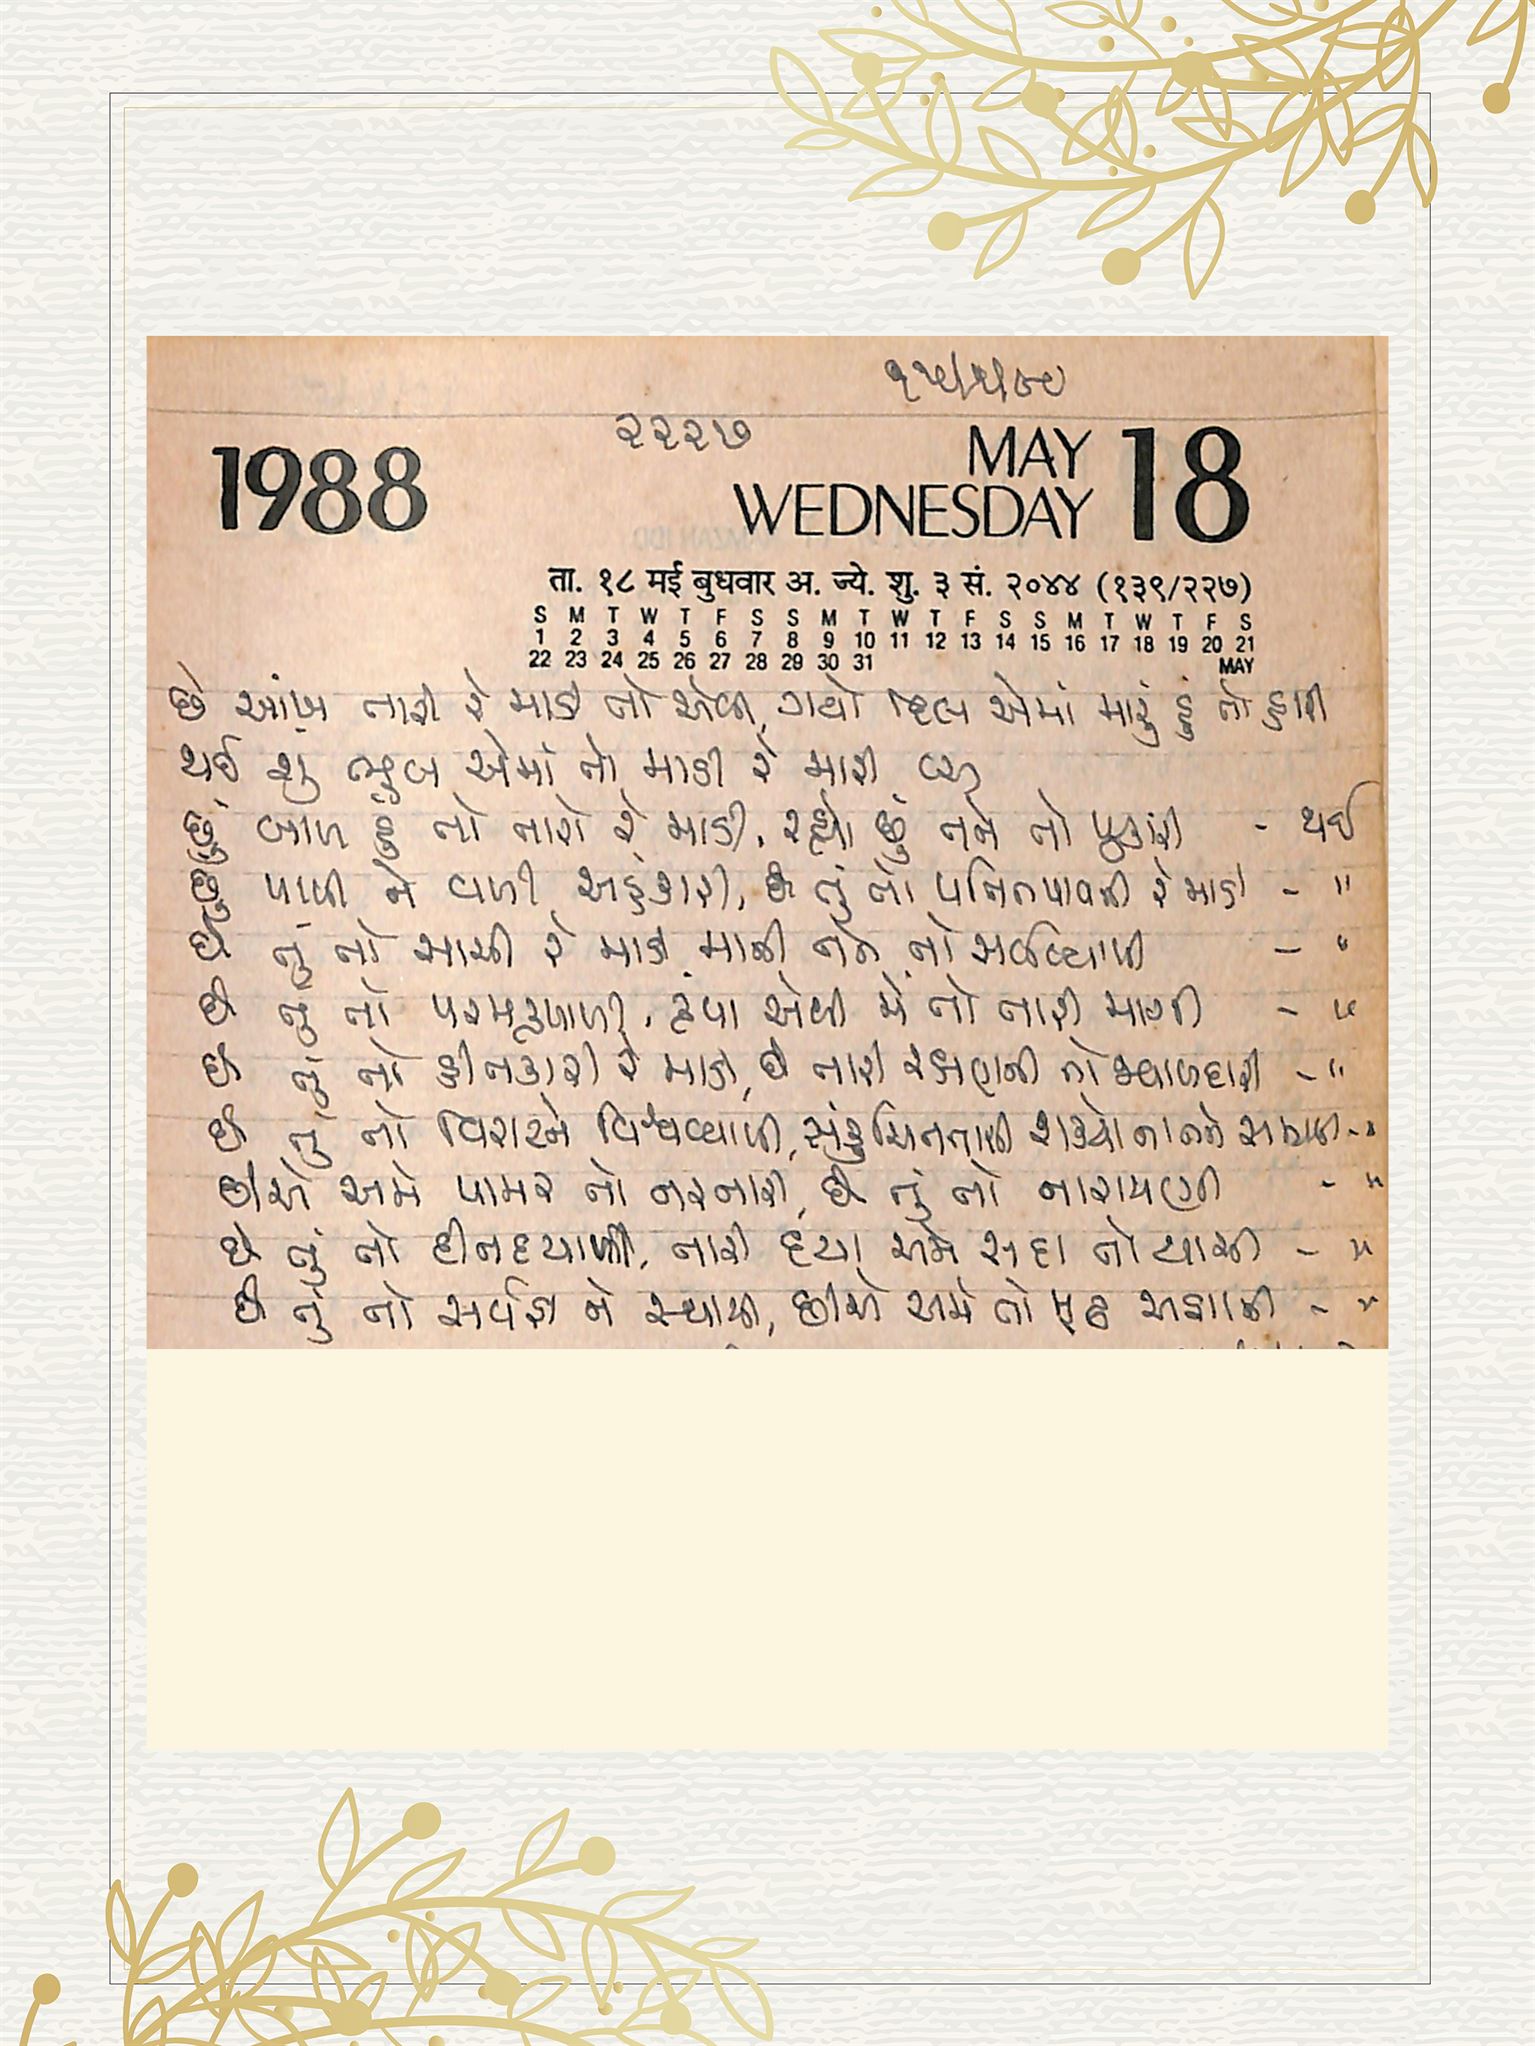 ૧૫/૫/૮૯
૨૨૨૭
1988
MAY
WEDNESDAY 18
ता. १८ मई बुधवार अ. ज्ये. शु. ३ सं. २०४४ (१३९/२२७)
S M T W T F S S M T W T F S S M T W T F S
1 2 3 4 5 6 7 8 9 10 11 12 13 14 15 16 17 18 19 20 21
22 23 24 25 26 27 28 29 30 31 MAY
છે આંખ તારી રે માડી તો એવી, ગયો દિલ એમાં મારું હું તો હારી
થઈ શું ભુલ એમાં તો માડી રે મારી
છું બાળ હું તો તારો રે માડી, રહ્યો છું તને તો પુકારી - થઈ
છું પાપી ને વળી અહંકારી, છે તું તો પતિતપાવની રે માડી - "
છે તું તો સાચી રે માડી, માની તને તો સર્વવ્યાપી - "
છે તું તો પરમકૃપાળી, કૃપા એવી મેં તો તારી માગી - "
છે તું તો હીતકારી રે માડી, છે તારી રક્ષણની તો જવાબદારી - "
છે તું તો વિરાટને વિશ્વવ્યાપી, સંકુચિતતાથી શક્યો ના તને સમાવી - "
છીએ અમે પામર તો નરનારી, છે તું તો નારાયણી - "
છે તું તો દીનદયાળી, તારી દયા અમે સદા તો યાચી - "
છે તું તો સર્વજ્ઞ ને સ્થાયી, છીએ અમે તો મૂઢ અજ્ઞાની - "